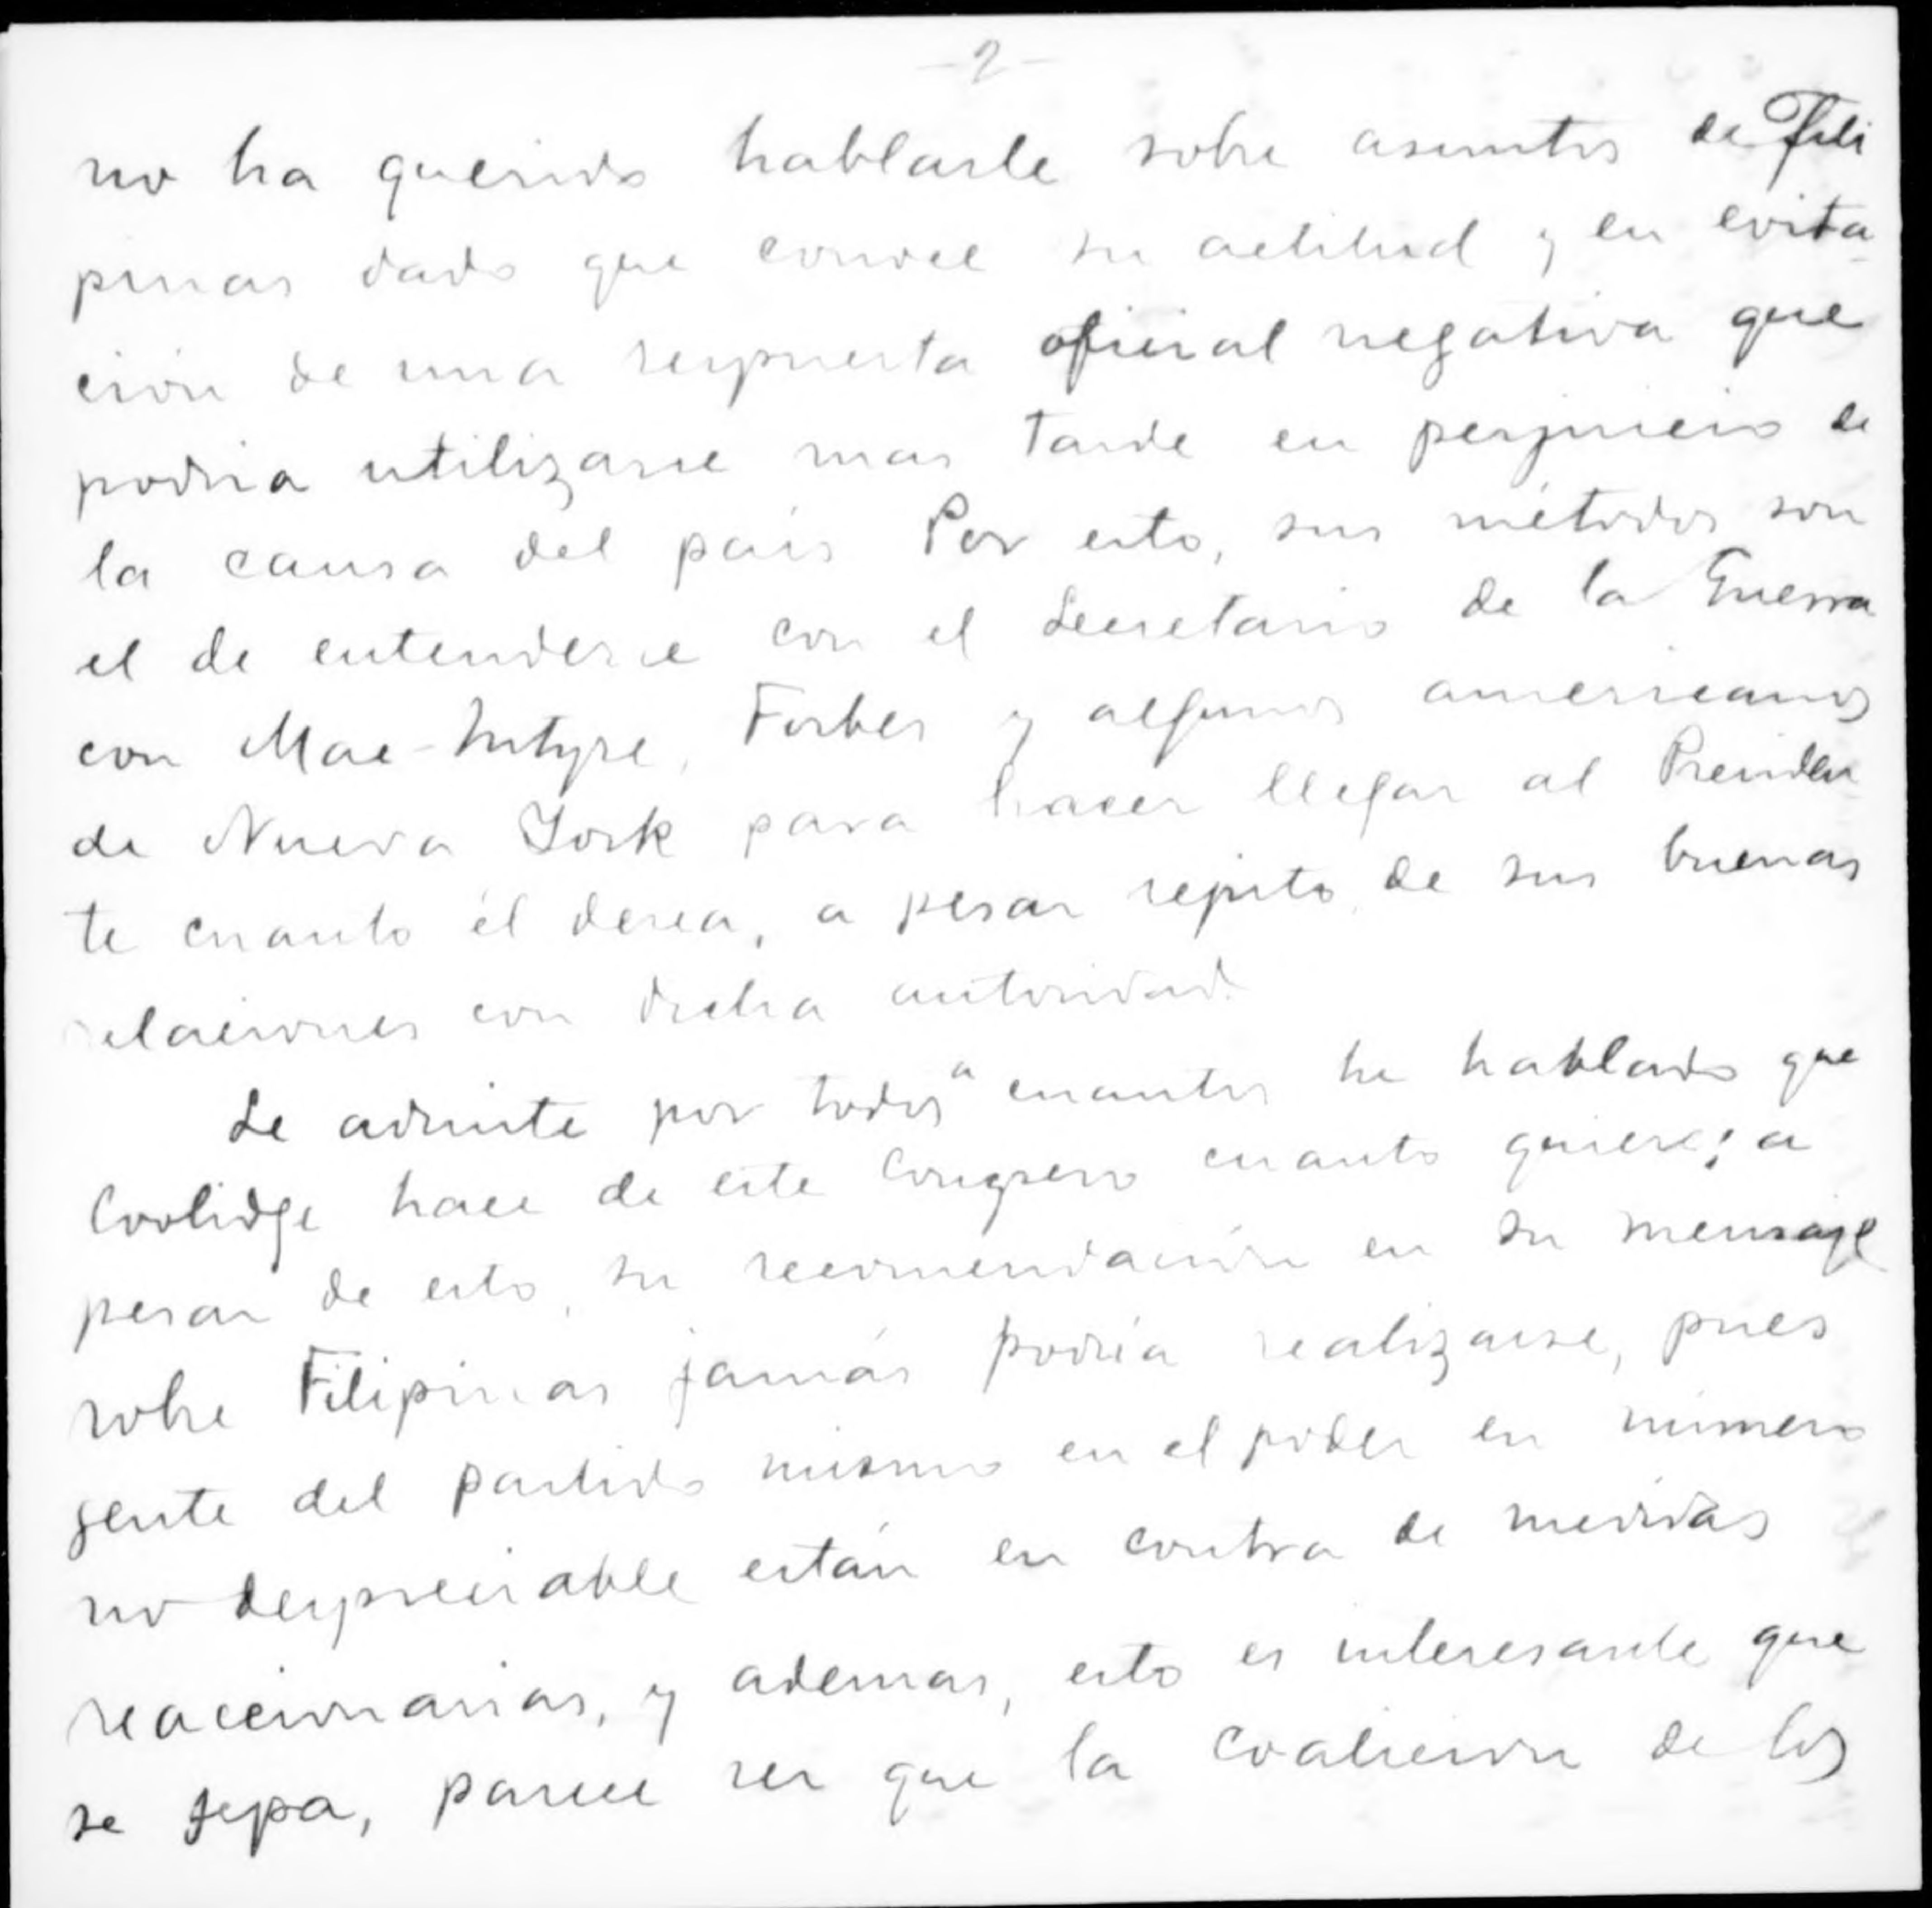 -2-
no ha querido hablarle sobre asuntos de Fili
pinas dado que conoce su actitud y en evita-
ción de una respuesta oficial negativa que
podria utilizarse mas tarde en perjuicio de
la causa del país Por esto, sus métodos son
el de entenderse con el Secretario de la Guerra
con Mac-Intyre, Forbes y algunos americanos
de Nueva York para hacer llegar al Presiden
te cuanto él desea, a pesar repito de sus buenas
relaciones con dicha autoridad.
Se admite por todos a cuantos he hablado que
Coolidge hace de este Congreso cuanto quiere; a
pesar de esto, su recomendación en su mensaje
sobre Filipinas jamás podría realizarse, pues
gente del partido mismo en el poder en número
no despreciable están en contra de medidas
reaccionarias, y ademas, esto es interesante que
se sepa, parece ser que la coalicion de los